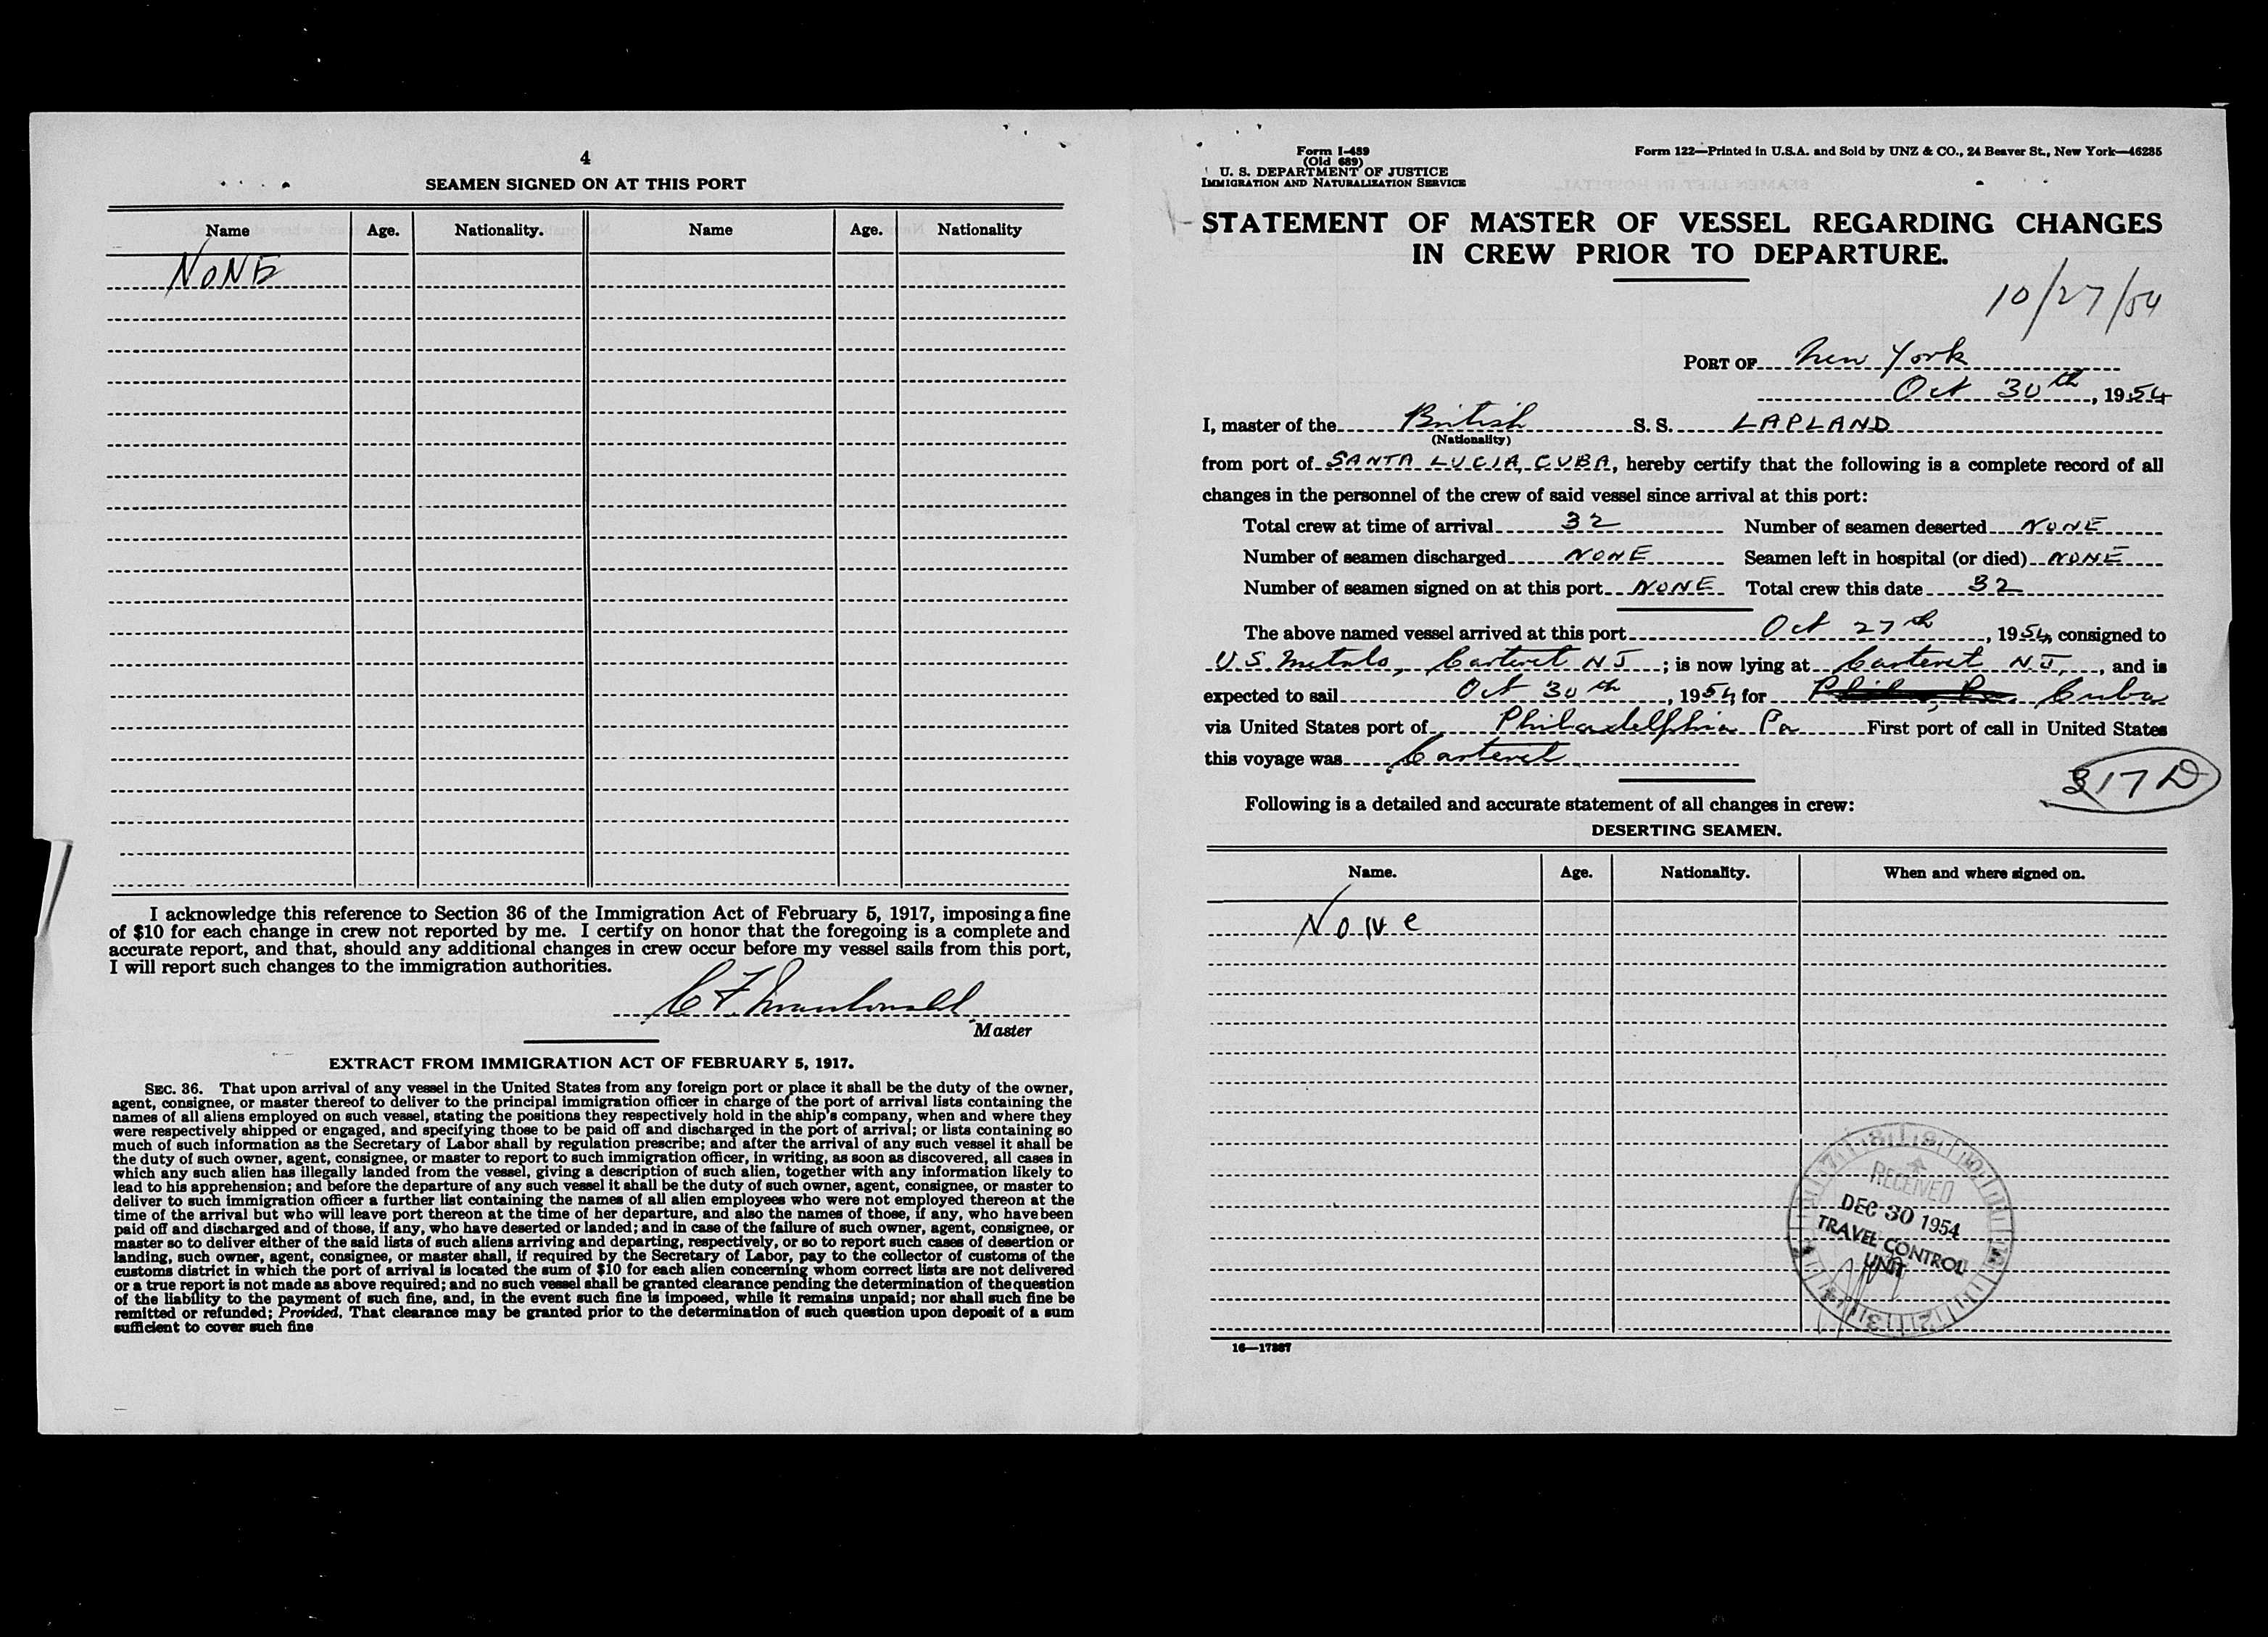 4
SEAMEN SIGNED ON AT THIS PORT
Name Age. Nationality. Name Age. Nationality
NONE
I acknowledge this reference to Section 36 of the Immigration Act of February 5, 1917, imposing a fine
of $10 for each change in crew not reported by me. I certify on honor that the foregoing is a complete and
accurate report, and that, should any additional changes in crew occur before my vessel sails from this port,
I will report such changes to the immigration authorities.
C F Macdonald
Master
EXTRACT FROM IMMIGRATION ACT OF FEBRUARY 5, 1917.
SEC. 36. That upon arrival of any vessel in the United States from any foreign port or place it shall be the duty of the owner,
agent, consignee, or master thereof to deliver to the principal immigration officer in charge of the port of arrival lists containing the
names of all aliens employed on such vessel, stating the positions they respectively hold in the ship's company, when and where they
were respectively shipped or engaged, and specifying those to be paid off and discharged in the port of arrival; or lists containing so
much of such information as the Secretary of Labor shall by regulation prescribe; and after the arrival of any such vessel it shall be
the duty of such owner, agent, consignee, or master to report to such immigration officer, in writing, as soon as discovered, all cases in
which any such alien has illegally landed from the vessel, giving a description of such alien, together with any information likely to
lead to his apprehension; and before the departure of any such vessel it shall be the duty of such owner, agent, consignee, or master to
deliver to such immigration officer a further list containing the names of all alien employees who were not employed thereon at the
time of the arrival but who will leave port thereon at the time of her departure, and also the names of those, if any, who have been
paid off and discharged and of those, if any, who have deserted or landed; and in case of the failure of such owner, agent, consignee, or
master so to deliver either of the said lists of such aliens arriving and departing, respectively, or so to report such cases of desertion or
landing, such owner, agent, consignee, or master shall, if required by the Secretary of Labor, pay to the collector of customs of the
customs district in which the port of arrival is located the sum of $10 for each alien concerning whom correct lists are not delivered
or a true report is not made as above required; and no such vessel shall be granted clearance pending the determination of the question
of the liability to the payment of such fine, and, in the event such fine is imposed, while it remains unpaid; nor shall such fine be
remitted or refunded; Provided, That clearance may be granted prior to the determination of such question upon deposit of a sum
sufficient to cover such fine
Form I-489
(Old 689)
U. S. DEPARTMENT OF JUSTICE
IMMIGRATION AND NATURALIZATION SERVICE
Form 122—Printed in U.S.A. and Sold by UNZ & CO., 24 Beaver St., New York—46285
STATEMENT OF MASTER OF VESSEL REGARDING CHANGES
IN CREW PRIOR TO DEPARTURE.
10/27/54
PORT OF New York
Oct 30th, 1954
I, master of the British S. S. LAPLAND
(Nationality)
from port of SANTA LUCIA, CUBA, hereby certify that the following is a complete record of all
changes in the personnel of the crew of said vessel since arrival at this port:
Total crew at time of arrival 32 Number of seamen deserted NONE
Number of seamen discharged NONE Seamen left in hospital (or died) NONE
Number of seamen signed on at this port NONE Total crew this date 32
The above named vessel arrived at this port Oct 27th, 1954, consigned to
U.S. Metals, Carteret NJ; is now lying at Carteret N.J., and is
expected to sail Oct 30th, 1954, for Cuba
via United States port of Philadelphia Pa First port of call in United States
this voyage was Carteret
317D
Following is a detailed and accurate statement of all changes in crew:
DESERTING SEAMEN.
Name. Age. Nationality. When and where signed on.
None
RECEIVED
DEC 30 1954
TRAVEL CONTROL
UNIT
16—17387